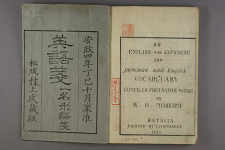 安政四年丁巳十月築准
英語箋
一名米語箋
松城村上氏蔵版
AN
ENGLISH AND JAPANESE
AND
Japanese and English
VOCABULARY
COMPILED FROM NATIVE WORKS
BY
W. H. MEDHURST
BATAVIA
PRINTED BY LITHOGRAPHY